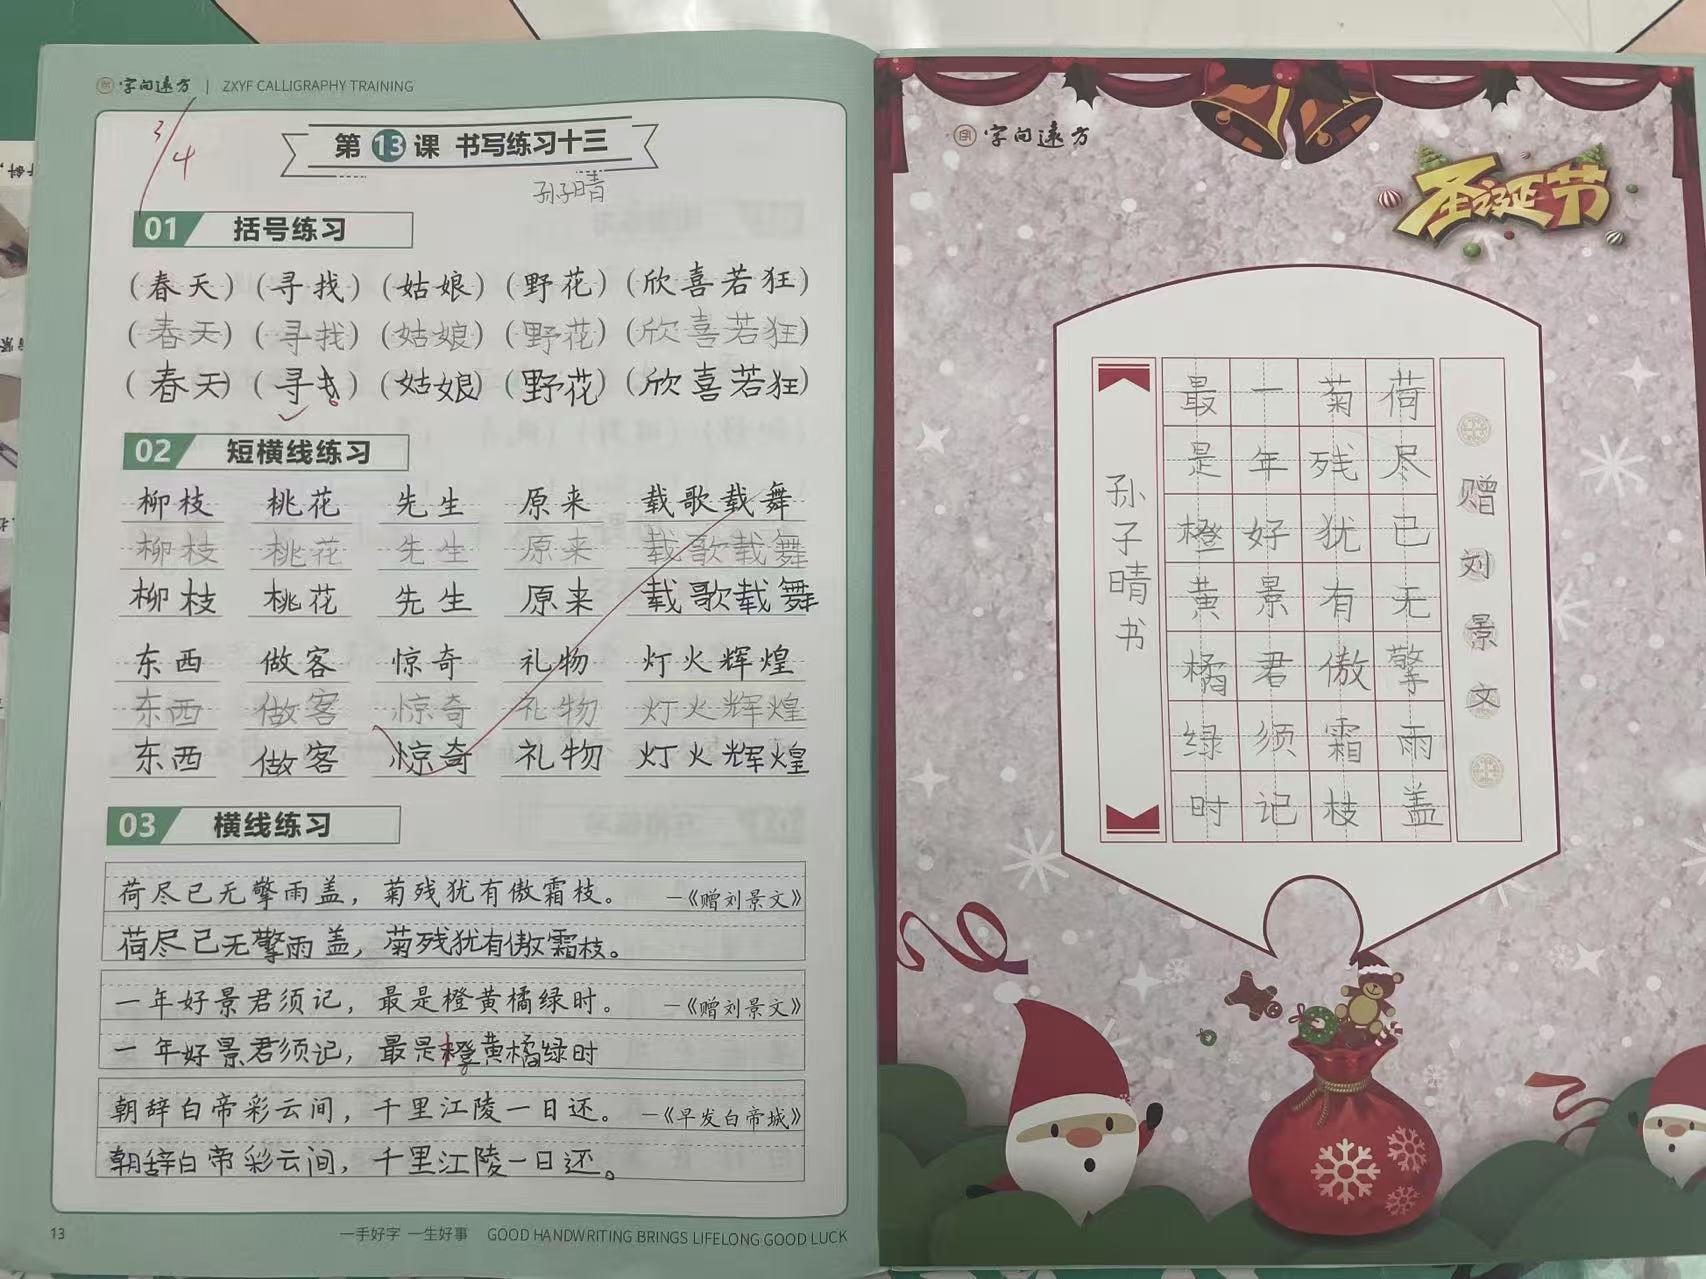 字向遠方 | ZXYF CALLIGRAPHY TRAINING
3/4
第13课 书写练习十三
孙子晴
01 括号练习
(春天) (寻找) (姑娘) (野花) (欣喜若狂)
(春天) (寻找) (姑娘) (野花) (欣喜若狂)
(春天) (寻找) (姑娘) (野花) (欣喜若狂)
02 短横线练习
柳枝 桃花 先生 原来 载歌载舞
柳枝 桃花 先生 原来 载歌载舞
柳枝 桃花 先生 原来 载歌载舞
东西 做客 惊奇 礼物 灯火辉煌
东西 做客 惊奇 礼物 灯火辉煌
东西 做客 惊奇 礼物 灯火辉煌
03 横线练习
荷尽已无擎雨盖，菊残犹有傲霜枝。 —《赠刘景文》
荷尽已无擎雨盖，菊残犹有傲霜枝。
一年好景君须记，最是橙黄橘绿时。 —《赠刘景文》
一年好景君须记，最是橙黄橘绿时
朝辞白帝彩云间，千里江陵一日还。 —《早发白帝城》
朝辞白帝彩云间，千里江陵一日还。
13
一手好字 一生好事 GOOD HANDWRITING BRINGS LIFELONG GOOD LUCK
字向遠方
圣诞节
赠刘景文
荷尽已无擎雨盖
菊残犹有傲霜枝
一年好景君须记
最是橙黄橘绿时
孙子晴书